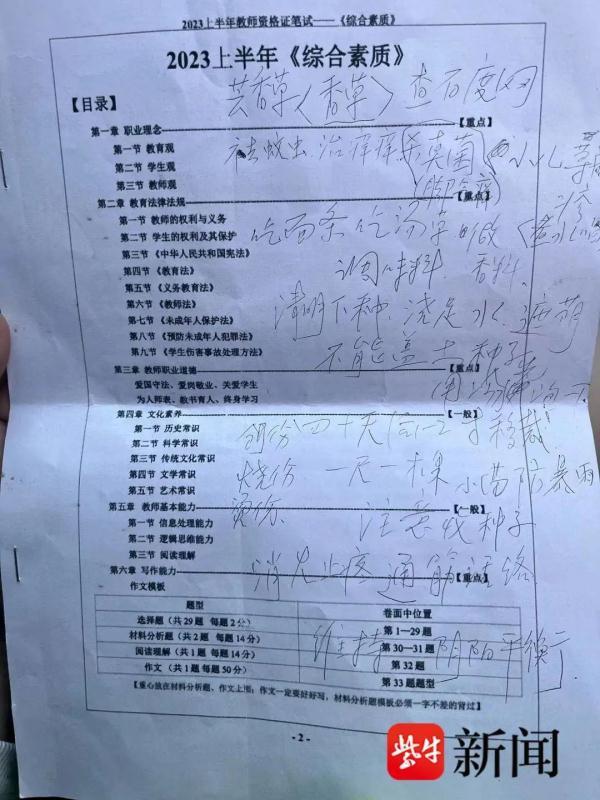 2023上半年教师资格证笔试——《综合素质》
2023上半年《综合素质》
芸香草（香草）查百度网
【目录】
第一章 职业理念【重点】
第一节 教育观
祛蚊虫 治痒痒 杀真菌 小儿
第二节 学生观
第三节 教师观
第二章 教育法律法规【重点】
第一节 教师的权利与义务
吃面条 吃汤
第二节 学生的权利及其保护
第三节《中华人民共和国宪法》
调味料 香料
第四节《教育法》
第五节《义务教育法》
第六节《教师法》
清明下种 浇足水 遮荫
第七节《未成年人保护法》
第八节《预防未成年人犯罪法》
不能盖土 种子
第九节《学生伤害事故处理方法》
第三章 教师职业道德【重点】
爱国守法、爱岗敬业、关爱学生
为人师表、教书育人、终身学习
第四章 文化素养【一般】
第一节 历史常识
四十天后 移栽
第二节 科学常识
第三节 传统文化常识
第四节 文学常识
烧伤 一尺一棵 小苗防暴雨
第五节 艺术常识
第五章 教师基本能力【一般】
烫伤 注意 种子
第一节 信息处理能力
第二节 逻辑思维能力
第三节 阅读理解
第六章 写作能力【重点】
消炎止疼 通筋活络
作文模板
题型 卷面中位置
选择题（共29题 每题2分） 第1—29题
材料分析题（共2题 每题14分） 第30—31题
维持 阴阳平衡
阅读理解（共1题 每题14分） 第32题
作文（共1题 每题50分） 第33题题型
【重心放在材料分析题、作文上面；作文一定要好好写，材料分析题模板必须一字不差的背过】
- 2 -
紫牛新闻